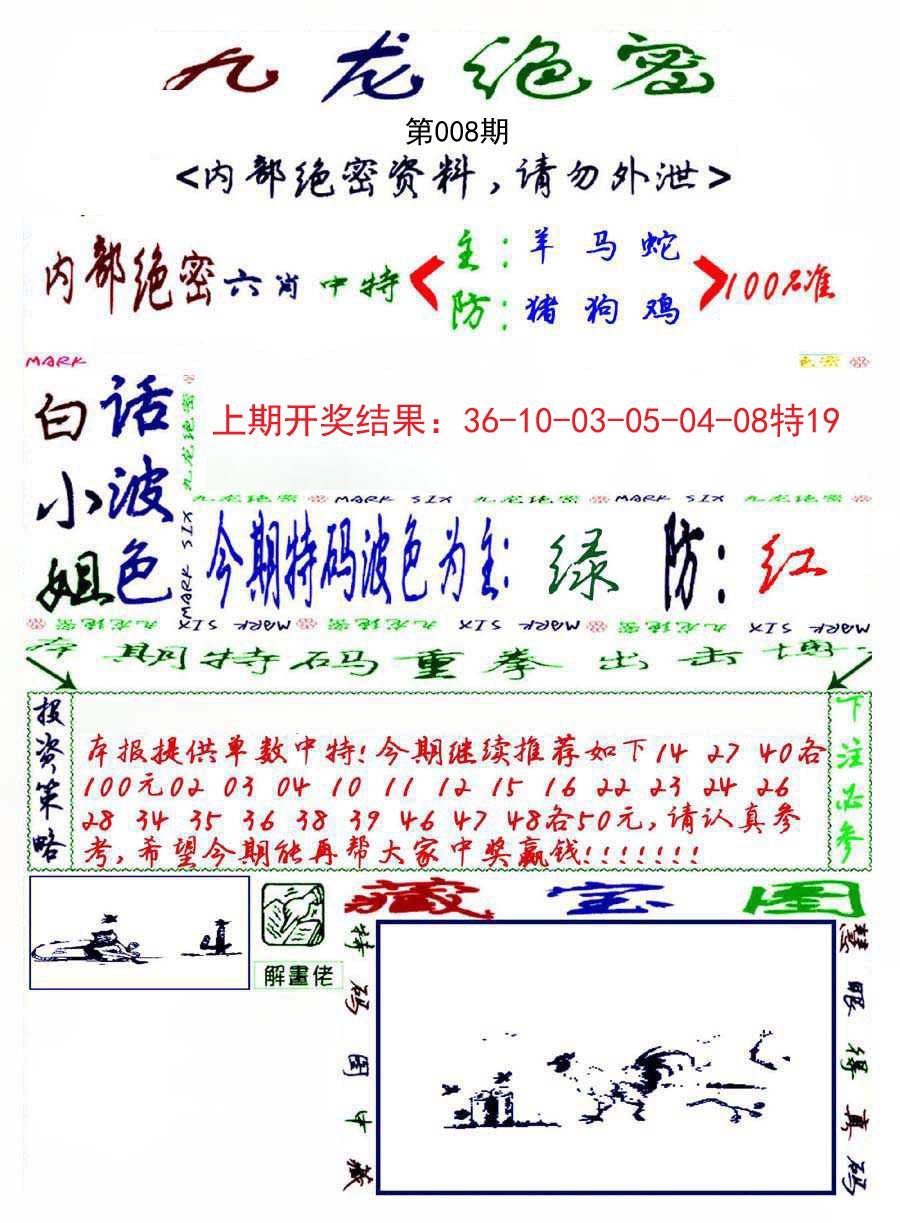 九龙绝密
第008期
<内部绝密资料,请勿外泄>
内部绝密六肖中特
主:羊 马 蛇
防:猪 狗 鸡
100%准
MARK
白话
小波
姐色
九龙绝密
MARK SIX
上期开奖结果：36-10-03-05-04-08特19
九龙绝密 MARK SIX 九龙绝密 MARK SIX 九龙绝密
今期特码波色为主: 绿 防: 红
九龙绝密 MARK SIX 九龙绝密 MARK SIX 九龙绝密 MARK SIX
本期特码重拳出击博
投资策略
本报提供单数中特!今期继续推荐如下14 27 40各
100元02 03 04 10 11 12 15 16 22 23 24 26
28 34 35 36 38 39 46 47 48各50元,请认真参
考,希望今期能再帮大家中奖赢钱!!!!!!!
下注必参
解畫佬
藏宝图
特码图中藏
慧眼得真码